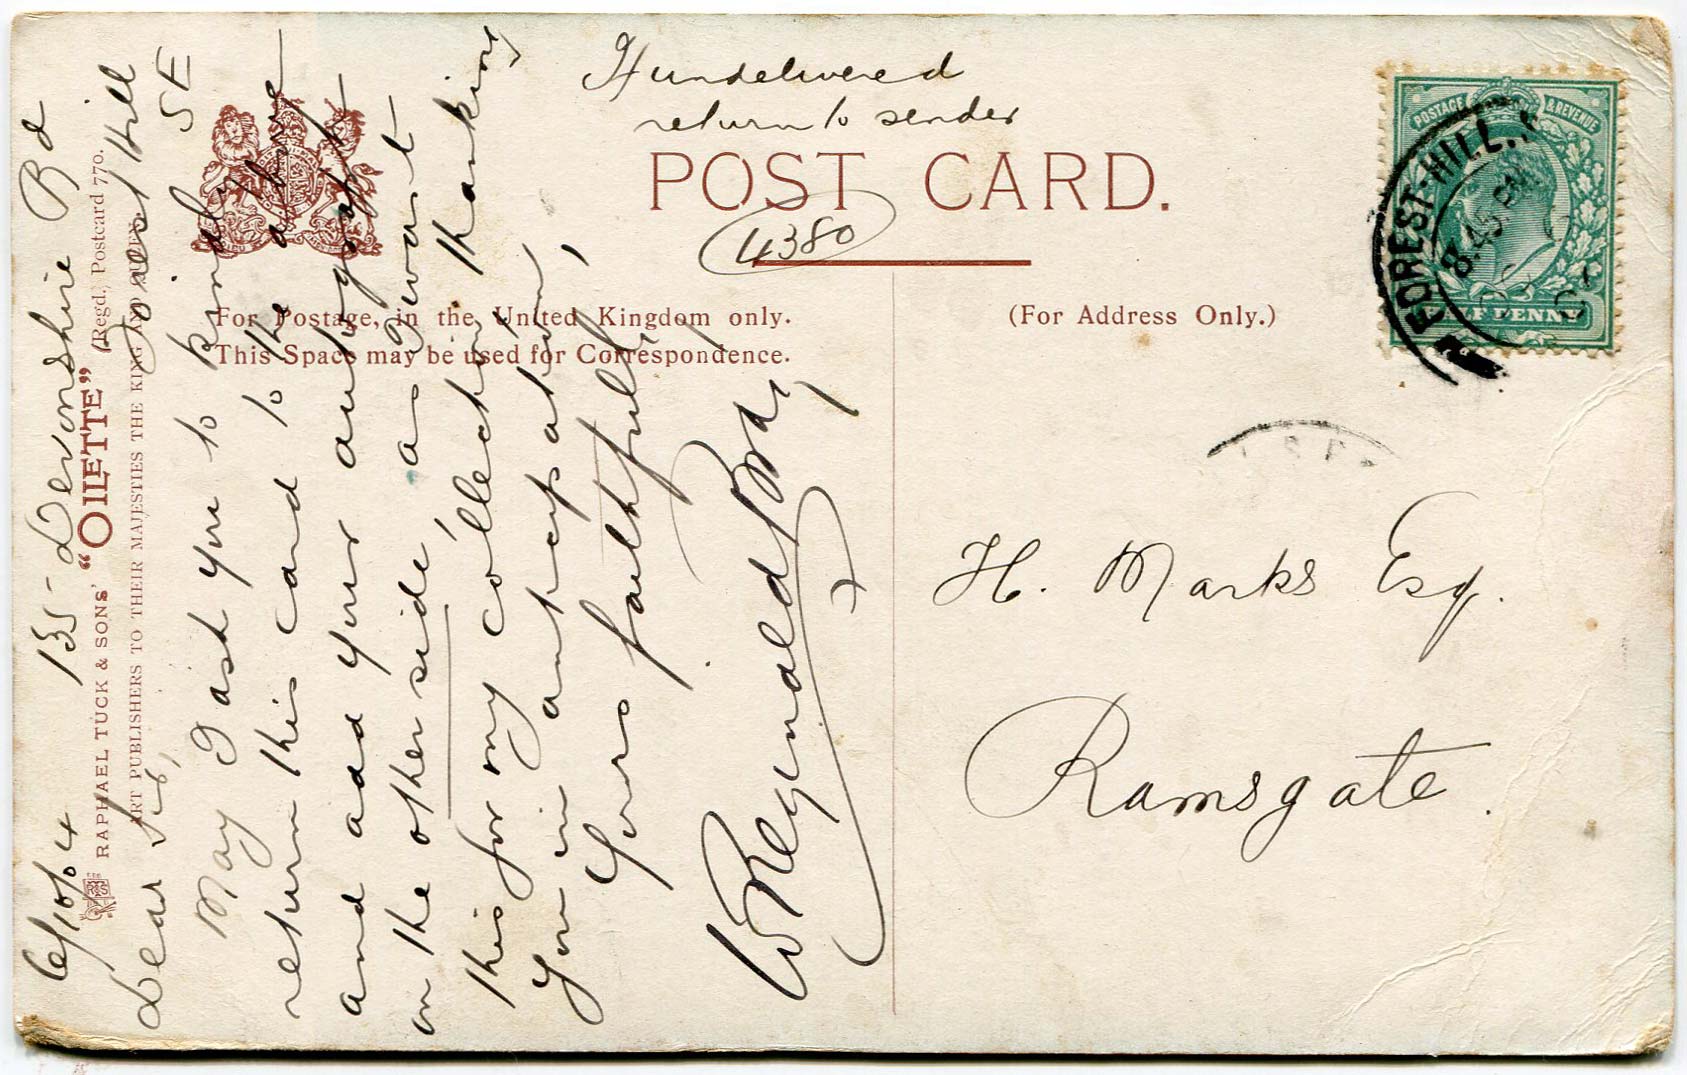 If undelivered
return to sender
POST CARD.
4380
For Postage, in the United Kingdom only.
This Space may be used for Correspondence.
(For Address Only.)
POSTAGE & REVENUE
HALF PENNY
FOREST-HILL.
8.45 PM
H. Marks Esq.
Ramsgate.
RAPHAEL TUCK & SONS' "OILETTE" (Regd.) Postcard 770.
ART PUBLISHERS TO THEIR MAJESTIES THE KING AND QUEEN.
135 Devonshire Rd
Forest Hill
SE
6/10/04
Dear Sir,
May I ask you to kindly
return this card to the above
and add your autograph
on the other side, as I want
this for my collection. Thanking
you in anticipation,
Yours faithfully,
W Reynolds Bray